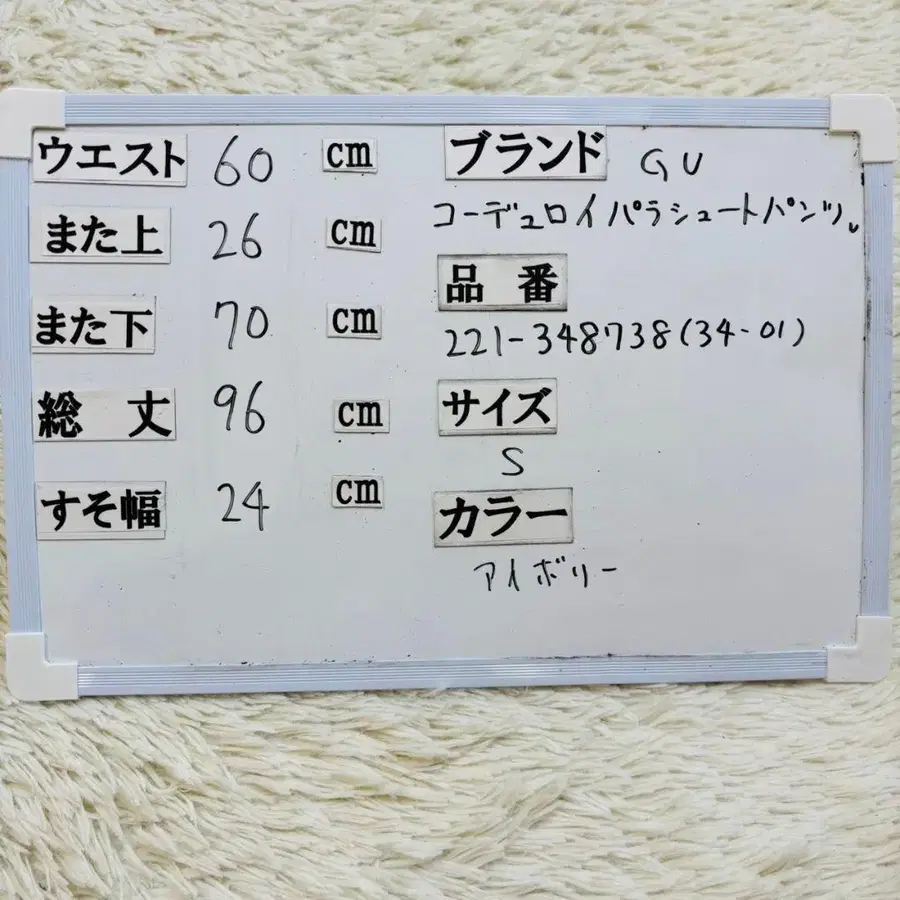 ウエスト 60 cm
また上 26 cm
また下 70 cm
総丈 96 cm
すそ幅 24 cm
ブランド GU
コーデュロイパラシュートパンツ
品番
221-348738(34-01)
サイズ
S
カラー
アイボリー